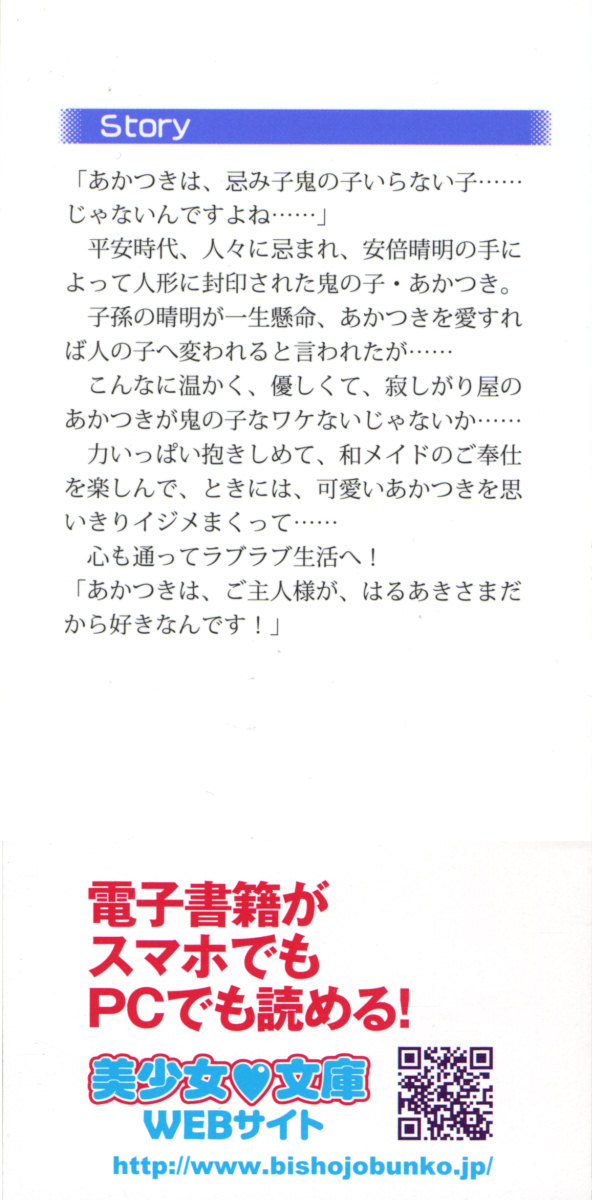 Story
「あかつきは、忌み子鬼の子いらない子……
じゃないんですよね……」
　平安時代、人々に忌まれ、安倍晴明の手に
よって人形に封印された鬼の子・あかつき。
　子孫の晴明が一生懸命、あかつきを愛すれ
ば人の子へ変われると言われたが……
　こんなに温かく、優しくて、寂しがり屋の
あかつきが鬼の子なワケないじゃないか……
　力いっぱい抱きしめて、和メイドのご奉仕
を楽しんで、ときには、可愛いあかつきを思
いきりイジメまくって……
　心も通ってラブラブ生活へ！
「あかつきは、ご主人様が、はるあきさまだ
から好きなんです！」
電子書籍が
スマホでも
PCでも読める!
美少女♥文庫
WEBサイト
http://www.bishojobunko.jp/